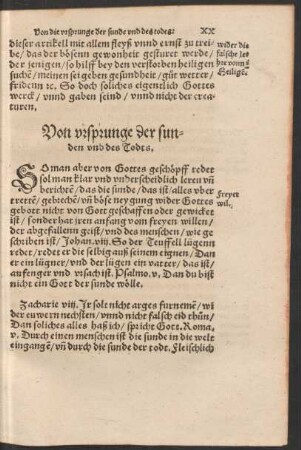 Von die vrsprunge der sunde vnd des todes. XX
dieser artikell mit allem fleysz vnnd ernst zu trei-
be/ das der bösenn gewonheit gesturet werde/
der jenigen/ so hilff bey den verstorben heiligen
suchē/ meinen sei geben gesundheit/ gůt wetter/
fridenn ⁊c. So doch soliches eigentlich Gottes
werck/ vnnd gaben seind/ vnnd nicht der crea-
turen.
wider die
falsche les
her vonn ð
Heiligē.
Von vrsprunge der sun-
den vnd des Todts.
SO man aber von Gottes geschöpff redet
sol man klar vnd vnderscheidlich leren vñ
berichtē/ das die sunde/ das ist/ alles vber
trettē/ gebrechē/ vñ böse neygung wider Gottes
gebott nicht von Gott geschaffen oder gewicket
ist/ sonder hat iren anfang vom freyen willen/
der abgefallenn geist/ vnd des menschen/ wie ge
schriben ist/ Johan. viij. So der Teuffell lügenn
redet/ redet er die selbig auß seinem eignen/ Dan
er ein lügner/ vnd der lügen ein vatter/ das ist/
anfenger vnd vrsach ist. Psalmo. v. Dan du bist
nicht ein Gott der sunde wölle.
Freyer
wil.
Zacharie viij. Ir solt nicht arges furnemē/ wi
der euwern nechsten/ vnnd nicht falsch eid thůn/
Dan soliches alles haß ich/ spricht Gott. Roma.
v. Durch einen menschen ist die sunde in die welt
eingangē/ vñ durch die sunde der todt. Fleischlich